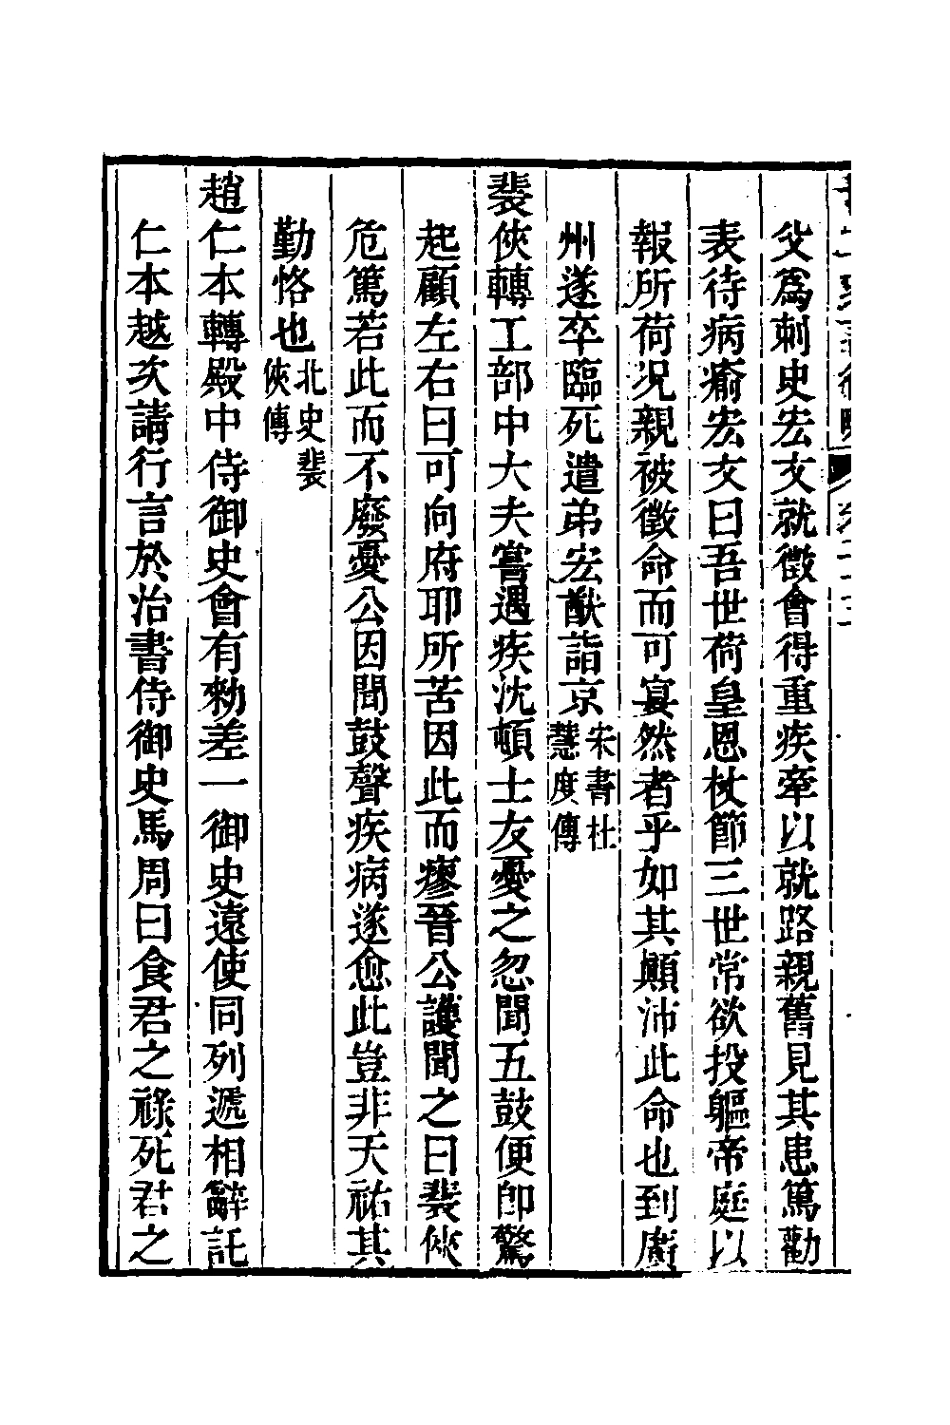 父爲刺史宏文就徵會得重疾牽以就路親舊見其患篤勸
表待病瘉宏文曰吾世荷皇恩杖節三世常欲投軀帝庭以
報所荷況親被徵命而可宴然者乎如其顚沛此命也到廣
州遂卒臨死遣弟宏猷詣京宋書杜慧度傳
裴俠轉工部中大夫嘗遇疾沈頓士友憂之忽聞五鼓便卽驚
起顧左右曰可向府耶所苦因此而瘳晉公護聞之曰裴俠
危篤若此而不廢憂公因聞鼓聲疾病遂愈此豈非天祐其
勤恪也北史裴俠傳
趙仁本轉殿中侍御史會有勑差一御史遠使同列遞相辭託
仁本越次請行言於治書侍御史馬周曰食君之祿死君之